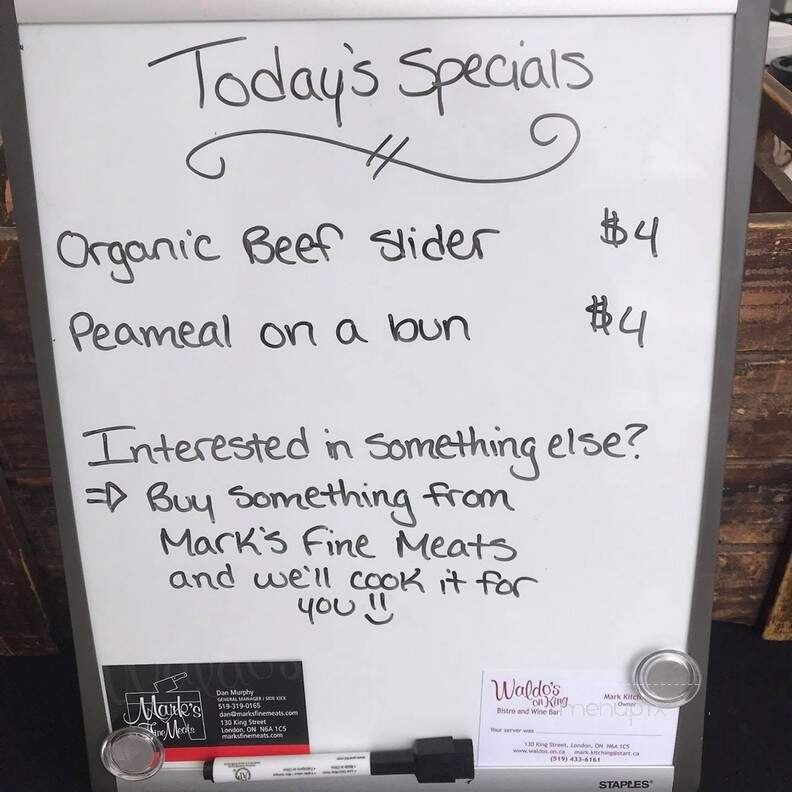 Today's Specials
Organic Beef slider $4
Peameal on a bun $4
Interested in something else?
⇒ Buy something from
Mark's Fine Meats
and we'll cook it for
you!!
Mark's
Fine Meats
Dan Murphy
GENERAL MANAGER / SIDE KICK
519-319-0165
dan@marksfinemeats.com
130 King Street
London, ON N6A 1C5
marksfinemeats.com
Waldo's
on King
Bistro and Wine Bar
Mark Kitch
Owner
menupix
Your server was
130 King Street, London, ON N6A 1C5
www.waldos.on.ca mark.kitching@start.ca
(519) 433-6161
STAPLES